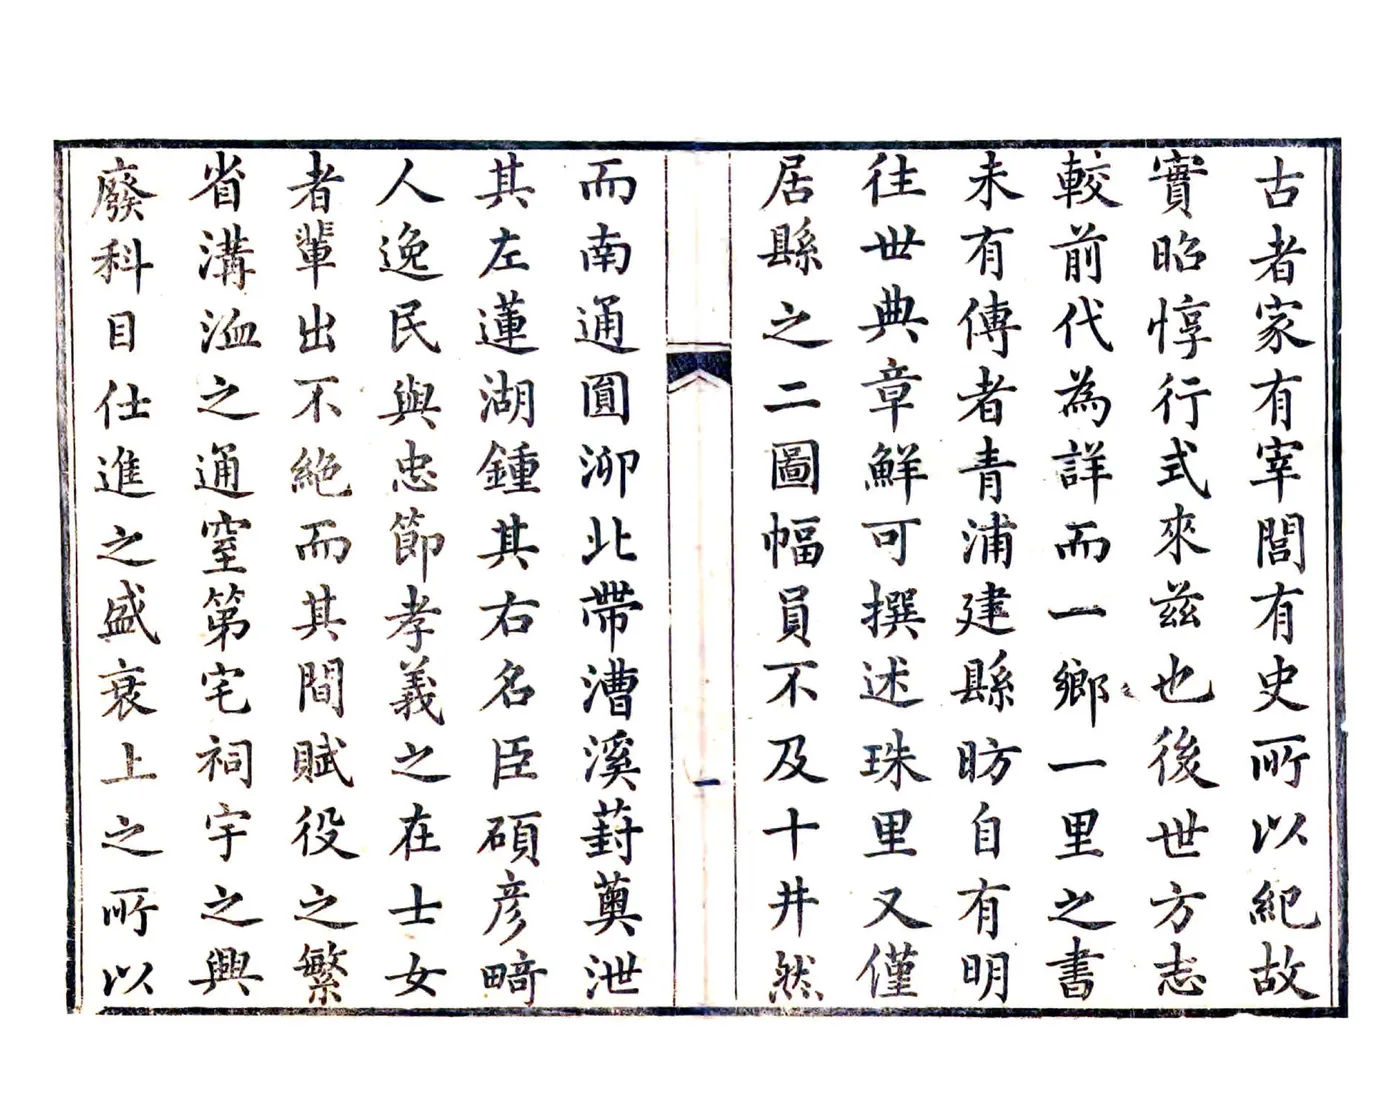 古者家有宰閭有史所以紀故
實昭惇行式來茲也後世方志
較前代為詳而一鄉一里之書
未有傳者青浦建縣昉自有明
往世典章鮮可撰述珠里又僅
居縣之二圖幅員不及十井然
而南通圓泖北帶漕溪葑薁泄
其左蓮湖鍾其右名臣碩彥畸
人逸民與忠節孝義之在士女
者輩出不絕而其間賦役之繁
省溝洫之通窒第宅祠宇之興
廢科目仕進之盛衰上之所以
一